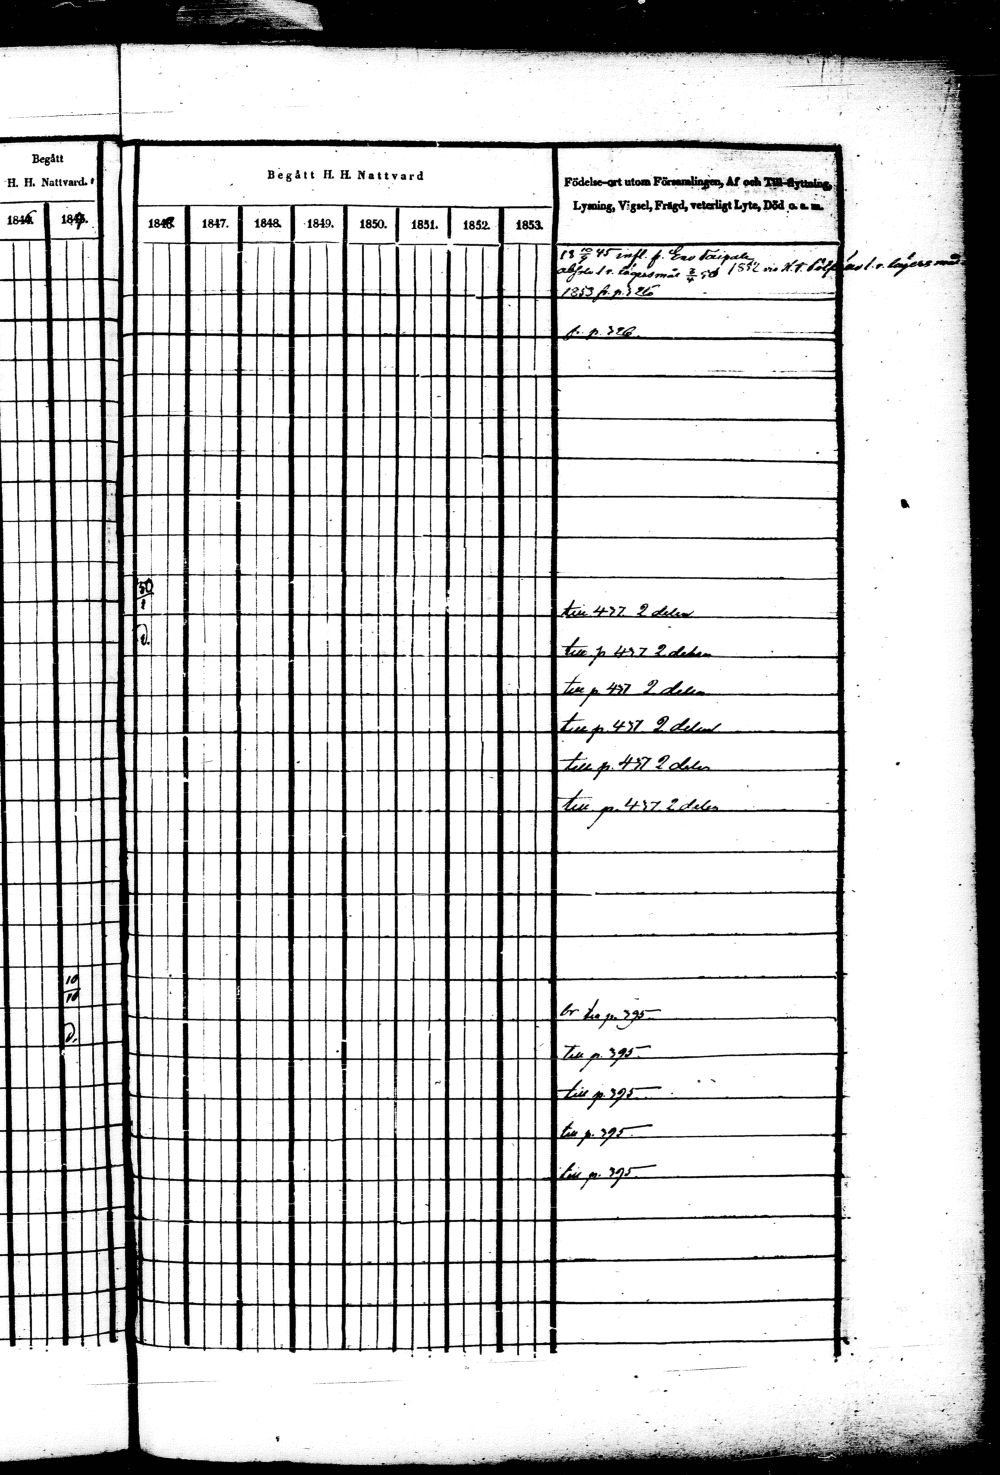 Begått
H. H. Nattvard.
1846 1847.
Begått H. H. Nattvard
1848. 1847. 1848. 1849. 1850. 1851. 1852. 1853.
Födelse-ort utom Församlingen, Af och Till-flyttning,
Lysning, Vigsel, Frägd, veterligt Lyte, Död o. s. m.
13 10/5 45 infl. f. Eno Taipale
1852
1853 fr. p. 326
fr. p. 326.
till 437 2 delen
till p 437 2 delen
till p 437 2 delen
till p. 437 2 delen
till p. 437 2 delen
till p. 437 2 delen
10/10
till p. 395
till p. 395
till p. 395
till p. 395
till p. 395